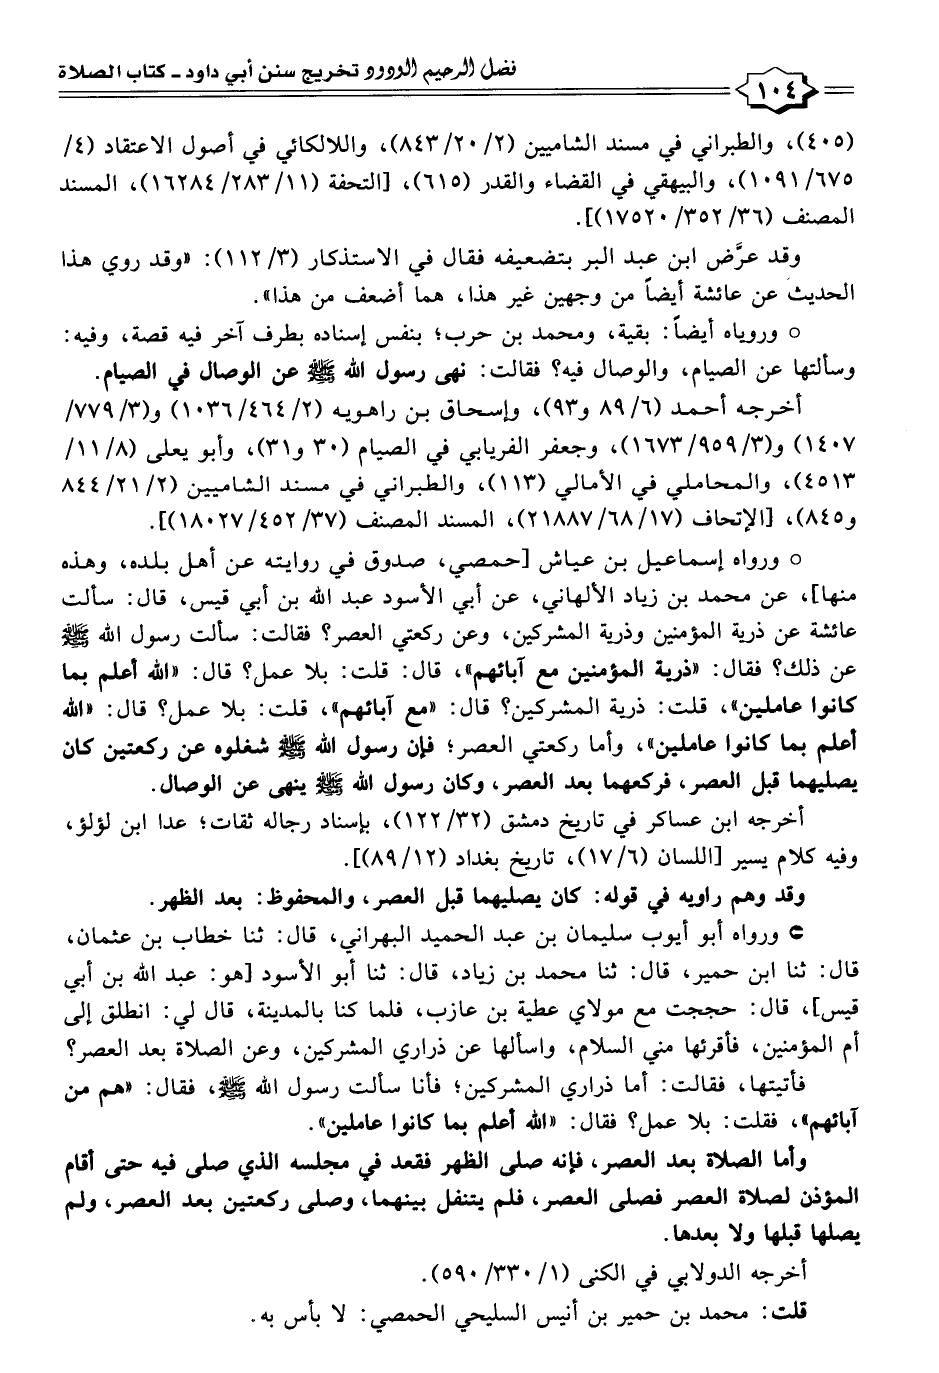 فضل الرحيم الودود تخريج سنن أبي داود - كتاب الصلاة
١٠٤
(٤٠٥)، والطبراني في مسند الشاميين (٢/ ٢٠/ ٨٤٣)، واللالكائي في أصول الاعتقاد (٤/
٦٧٥/ ١٠٩١)، والبيهقي في القضاء والقدر (٦١٥)، [التحفة (١١/ ٢٨٣/ ١٦٢٨٤)، المسند
المصنف (٣٦/ ٣٥٢/ ١٧٥٢٠)].
وقد عرَّض ابن عبد البر بتضعيفه فقال في الاستذكار (٣/ ١١٢): «وقد روي هذا
الحديث عن عائشة أيضاً من وجهين غير هذا، هما أضعف من هذا».
○ وروياه أيضاً: بقية، ومحمد بن حرب؛ بنفس إسناده بطرف آخر فيه قصة، وفيه:
وسألتها عن الصيام، والوصال فيه؟ فقالت: نهى رسول الله ﷺ عن الوصال في الصيام.
أخرجه أحمد (٦/ ٨٩ و٩٣)، وإسحاق بن راهويه (٢/ ٤٦٤/ ١٠٣٦) و(٣/ ٧٧٩/
١٤٠٧) و(٣/ ٩٥٩/ ١٦٧٣)، وجعفر الفريابي في الصيام (٣٠ و٣١)، وأبو يعلى (٨/ ١١/
٤٥١٣)، والمحاملي في الأمالي (١١٣)، والطبراني في مسند الشاميين (٢/ ٢١/ ٨٤٤
و٨٤٥)، [الإتحاف (١٧/ ٦٨/ ٢١٨٨٧)، المسند المصنف (٣٧/ ٤٥٢/ ١٨٠٢٧)].
○ ورواه إسماعيل بن عياش [حمصي، صدوق في روايته عن أهل بلده، وهذه
منها]، عن محمد بن زياد الألهاني، عن أبي الأسود عبد الله بن أبي قيس، قال: سألت
عائشة عن ذرية المؤمنين وذرية المشركين، وعن ركعتي العصر؟ فقالت: سألت رسول الله ﷺ
عن ذلك؟ فقال: «ذرية المؤمنين مع آبائهم»، قال: قلت: بلا عمل؟ قال: «الله أعلم بما
كانوا عاملين»، قلت: ذرية المشركين؟ قال: «مع آبائهم»، قلت: بلا عمل؟ قال: «الله
أعلم بما كانوا عاملين»، وأما ركعتي العصر؛ فإن رسول الله ﷺ شغلوه عن ركعتين كان
يصليهما قبل العصر، فركعهما بعد العصر، وكان رسول الله ﷺ ينهى عن الوصال.
أخرجه ابن عساكر في تاريخ دمشق (٣٢/ ١٢٢)، بإسناد رجاله ثقات؛ عدا ابن لؤلؤ،
وفيه كلام يسير [اللسان (٦/ ١٧)، تاريخ بغداد (١٢/ ٨٩)].
وقد وهم راويه في قوله: كان يصليهما قبل العصر، والمحفوظ: بعد الظهر.
⊃ ورواه أبو أيوب سليمان بن عبد الحميد البهراني، قال: ثنا خطاب بن عثمان،
قال: ثنا ابن حمير، قال: ثنا محمد بن زياد، قال: ثنا أبو الأسود [هو: عبد الله بن أبي
قيس]، قال: حججت مع مولاي عطية بن عازب، فلما كنا بالمدينة، قال لي: انطلق إلى
أم المؤمنين، فأقرئها مني السلام، واسألها عن ذراري المشركين، وعن الصلاة بعد العصر؟
فأتيتها، فقالت: أما ذراري المشركين؛ فأنا سألت رسول الله ﷺ، فقال: «هم من
آبائهم»، فقلت: بلا عمل؟ فقال: «الله أعلم بما كانوا عاملين».
وأما الصلاة بعد العصر، فإنه صلى الظهر فقعد في مجلسه الذي صلى فيه حتى أقام
المؤذن لصلاة العصر فصلى العصر، فلم يتنفل بينهما، وصلى ركعتين بعد العصر، ولم
يصلها قبلها ولا بعدها.
أخرجه الدولابي في الكنى (١/ ٣٣٠/ ٥٩٠).
قلت: محمد بن حمير بن أنيس السليحي الحمصي: لا بأس به.